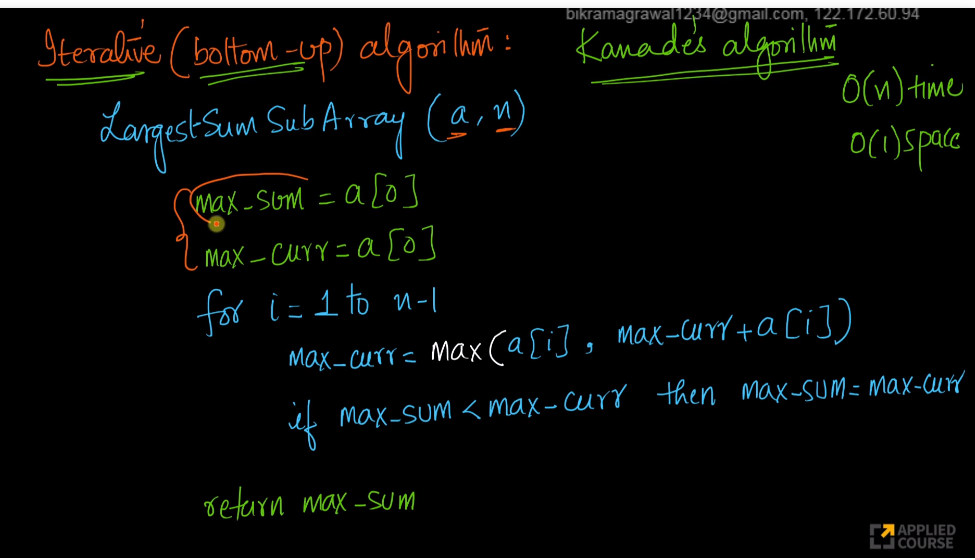 bikramagrawal1234@gmail.com, 122.172.60.94
Iterative (bottom-up) algorithm :
Kanade's algorithm
O(n) time
O(1) space
LargestSumSubArray (a, n)
max_sum = a[0]
max_curr = a[0]
for i = 1 to n-1
max_curr = max(a[i], max_curr + a[i])
if max_sum < max_curr then max_sum = max_curr
return max_sum
APPLIED
COURSE